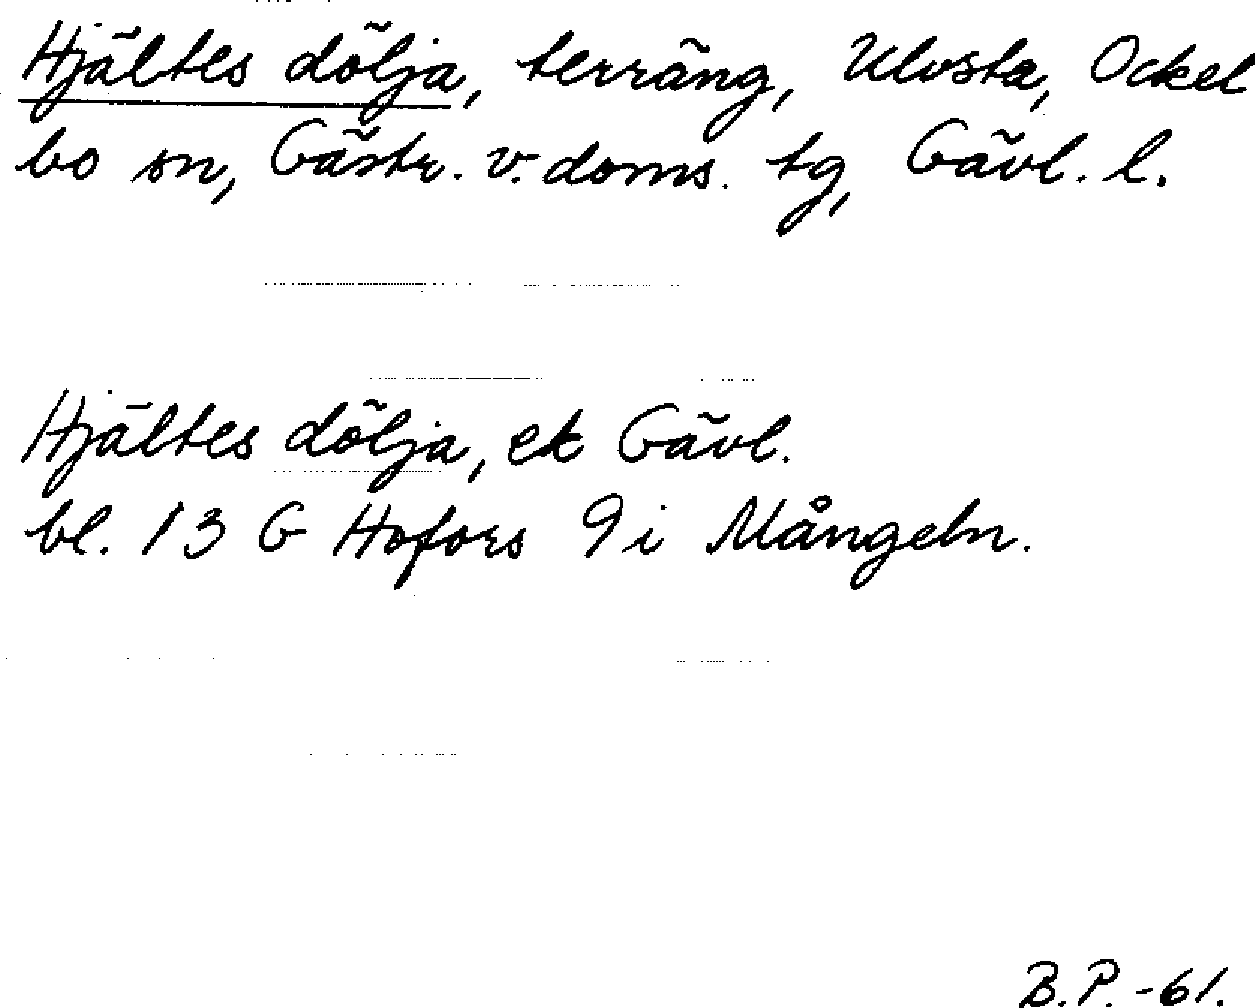 Hjältes dölja, terräng, Ulvsta, Ockel
bo sn, Gästr. v. doms. tg, Gävl. l.
Hjältes dölja, ek Gävl.
bl. 13 G Hofors 9 i Mångeln.
B.P. -61.